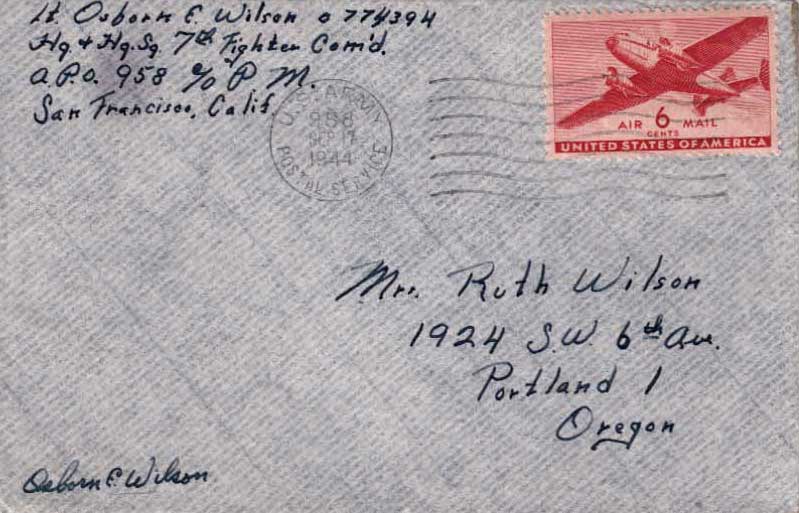 Lt. Osborn E. Wilson O 774394
Hq. & Hq. Sq. 7th Fighter Com'd.
A.P.O. 958 c/o P.M.
San Francisco, Calif.
U.S. ARMY
958
1944
POSTAL SERVICE
AIR 6 MAIL
CENTS
UNITED STATES OF AMERICA
Mrs. Ruth Wilson
1924 S.W. 6th Ave.
Portland 1
Oregon
Osborn E. Wilson